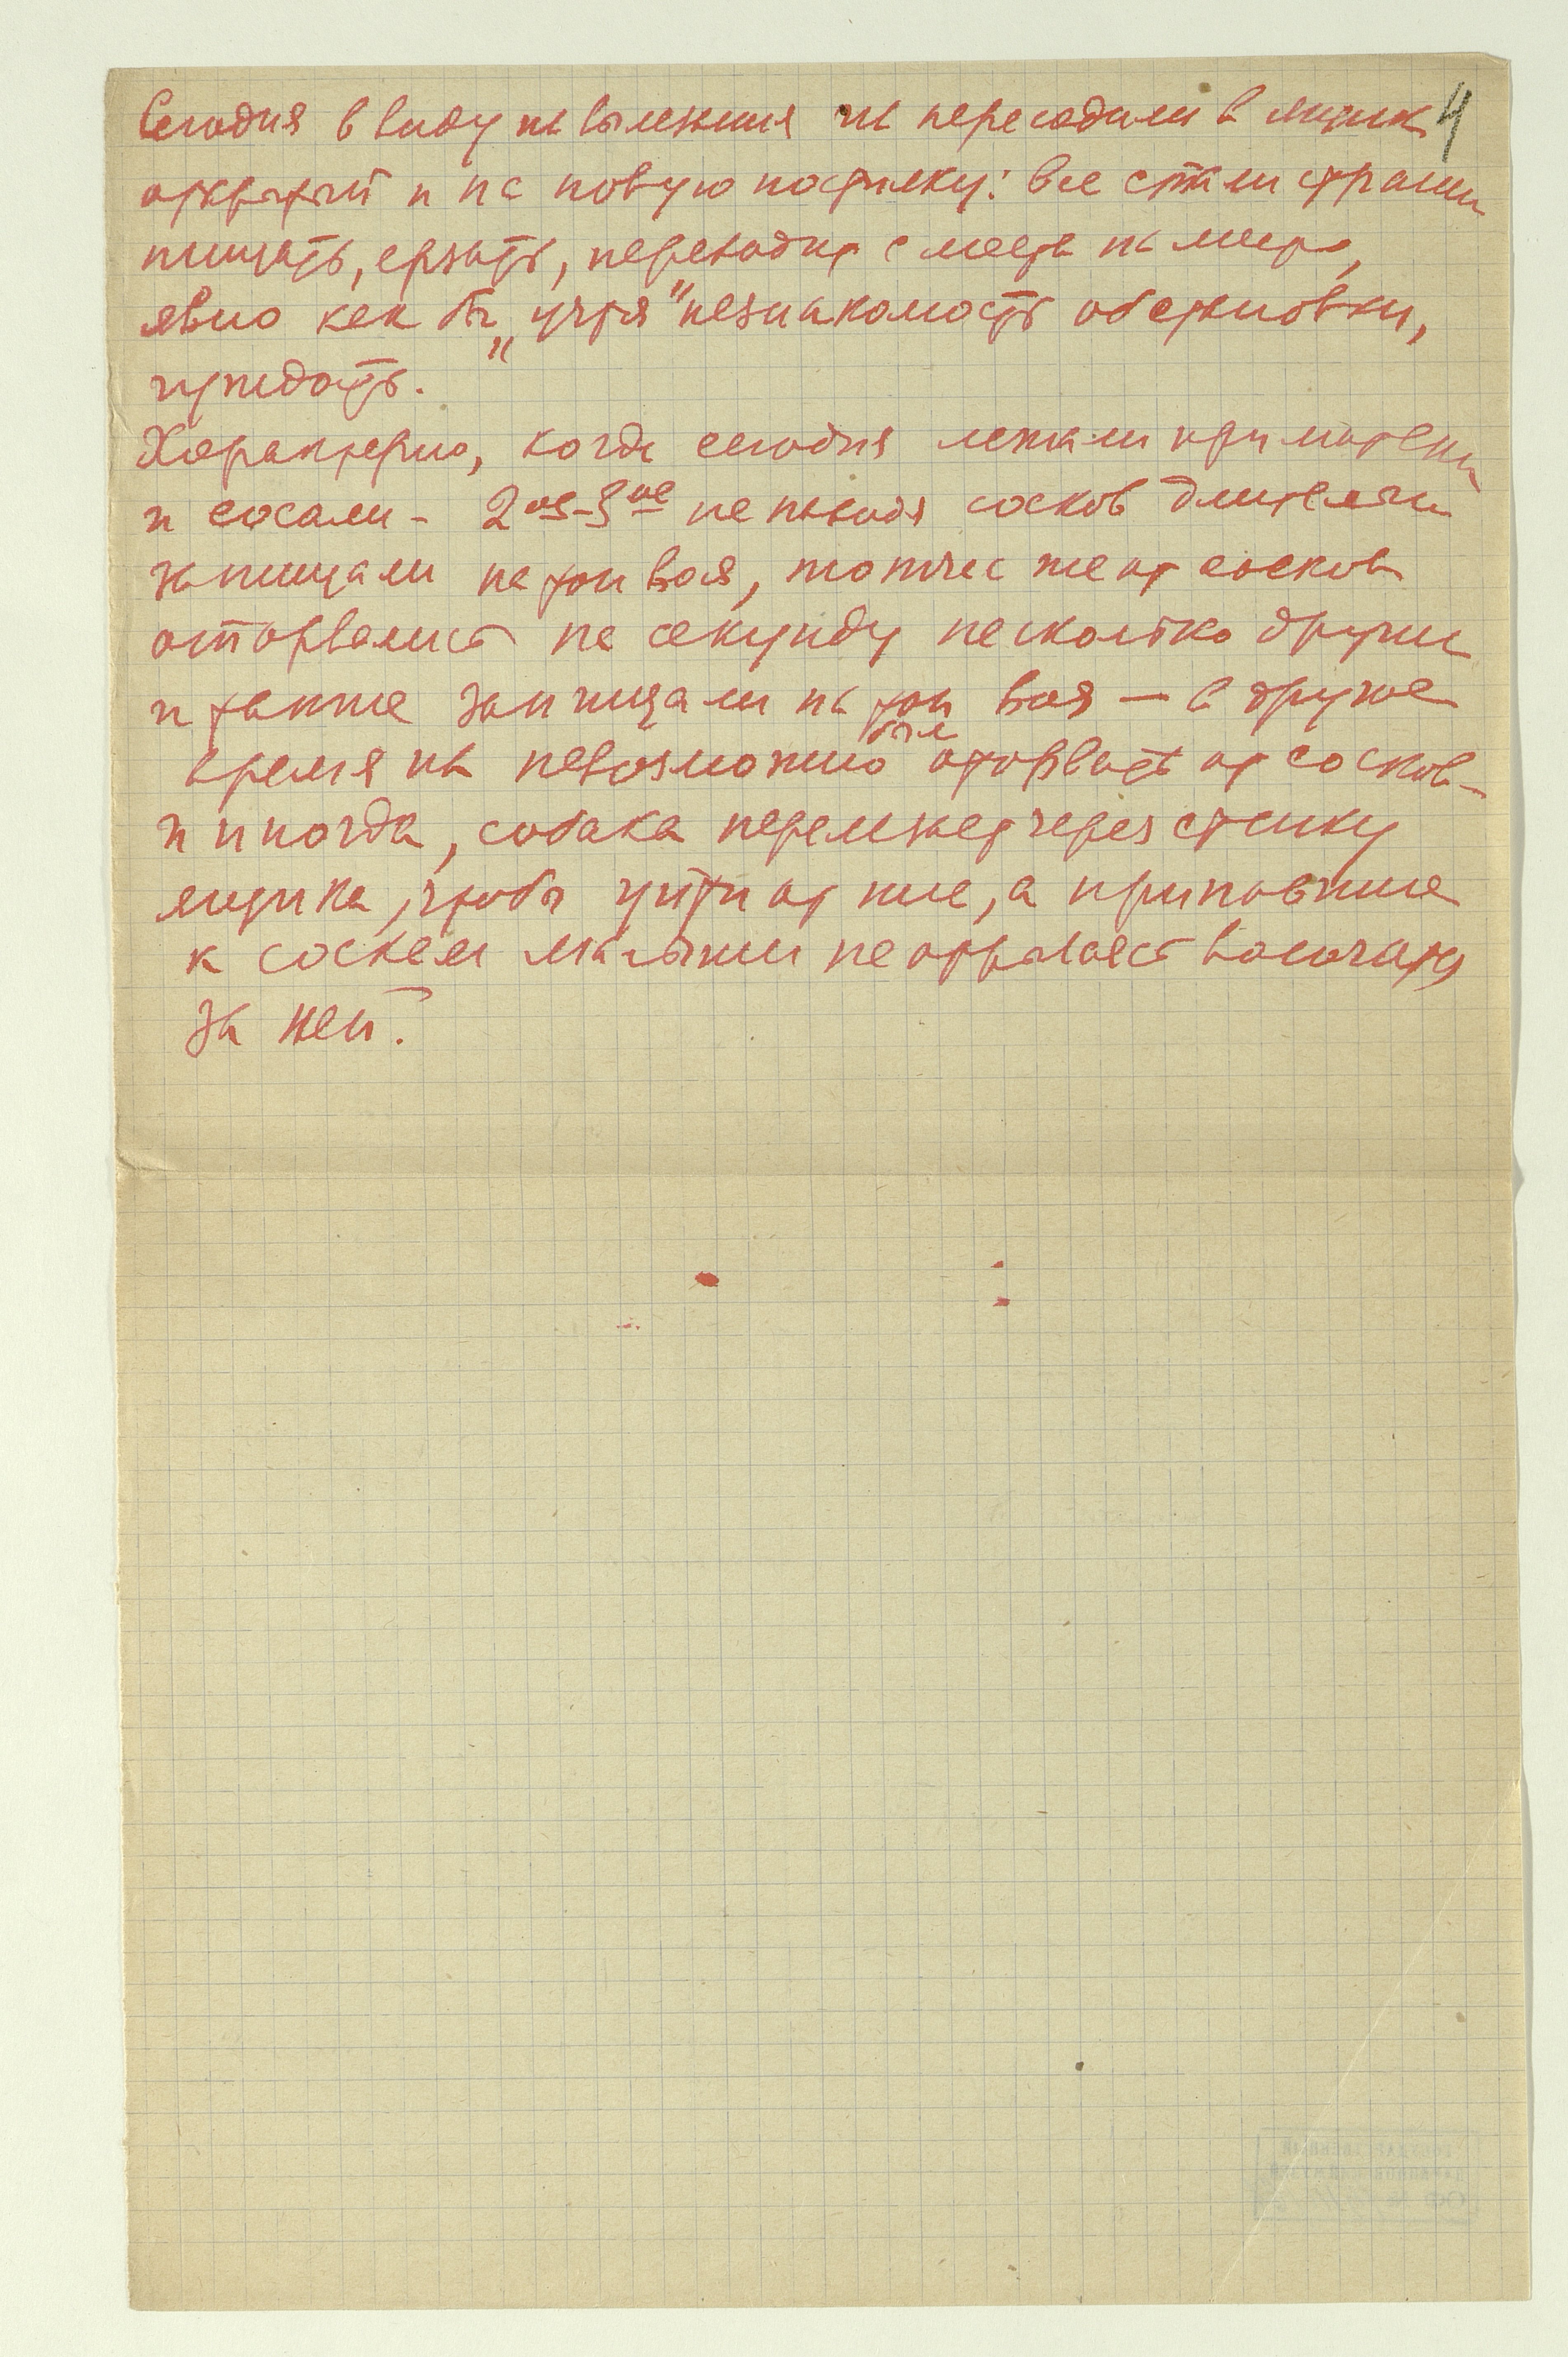 Сегодня в виду па вылежния их пересадили в ящик 4
открытый и на новую подстилку: все стали страшн
пищать, ерзать, переходить с места на место,
явно как бы „учтя" незнакомость обстановки,
чуждость.
Характерно, когда сегодня лежали при матери
и сосали - 2ое-3ое не находя сосков длительн
запищали на тон воя, тотчас же от сосков
оторвались на секунду несколько других
и также запищали на тон воя — в другое
время их невозможно было оторвать от сосков -
и иногда, собака перелезает через стенку
ящика, чтобы уйти от них, а припавшие
к соскам малыши не отрываясь волочатся
за ней.